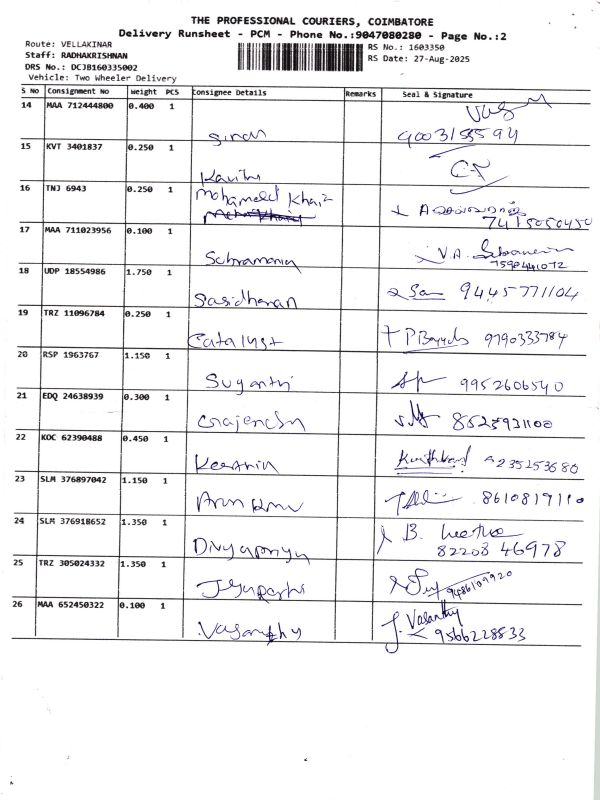 THE PROFESSIONAL COURIERS, COIMBATORE
Delivery Runsheet - PCM - Phone No.:9047080280 - Page No.:2
Route: VELLAKINAR
RS No.: 1603350
Staff: RADHAKRISHNAN
RS Date: 27-Aug-2025
DRS No.: DCJB160335002
Vehicle: Two Wheeler Delivery
S No Consignment No Weight PCS Consignee Details Remarks Seal & Signature
14 MAA 712444800 0.400 1
9003155594
15 KVT 3401837 0.250 1
16 TNJ 6943 0.250 1 Mohamed
7415050450
17 MAA 711023956 0.100 1
V.A.
7598441072
18 UDP 18554986 1.750 1
Sasidharan 9445771104
19 TRZ 11096784 0.250 1
Catalyst 9790333784
20 RSP 1963767 1.150 1
Suganthi 9952606540
21 EDQ 24638939 0.300 1
8525931100
22 KOC 62390488 0.450 1
9235253680
23 SLM 376897042 1.150 1
8610819110
24 SLM 376918652 1.350 1
B.
Divyapriya 82203 46978
25 TRZ 305024332 1.350 1
9486109920
26 MAA 652450322 0.100 1
J. Vasanthy
9566228833